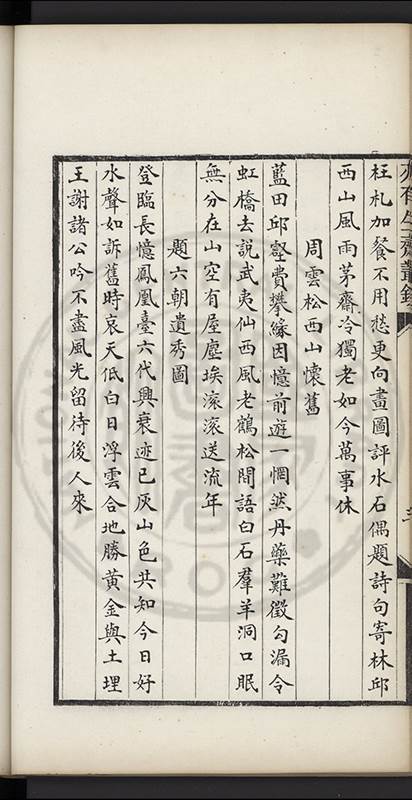 枉札加餐不用愁更向畫圖評水石偶題詩句寄林邱
西山風雨茅齋冷獨老如今萬事休
周雲松西山懷舊
藍田邱壑費攀緣因憶前遊一惘然丹藥難徵勾漏令
虹橋去說武夷仙西風老鶴松間語白石羣羊洞口眠
無分在山空有屋塵埃滾滾送流年
題六朝遺秀圖
登臨長憶鳳凰臺六代興衰迹已灰山色共知今日好
水聲如訴舊時哀天低白日浮雲合地勝黃金與土埋
王謝諸公吟不盡風光留待後人來